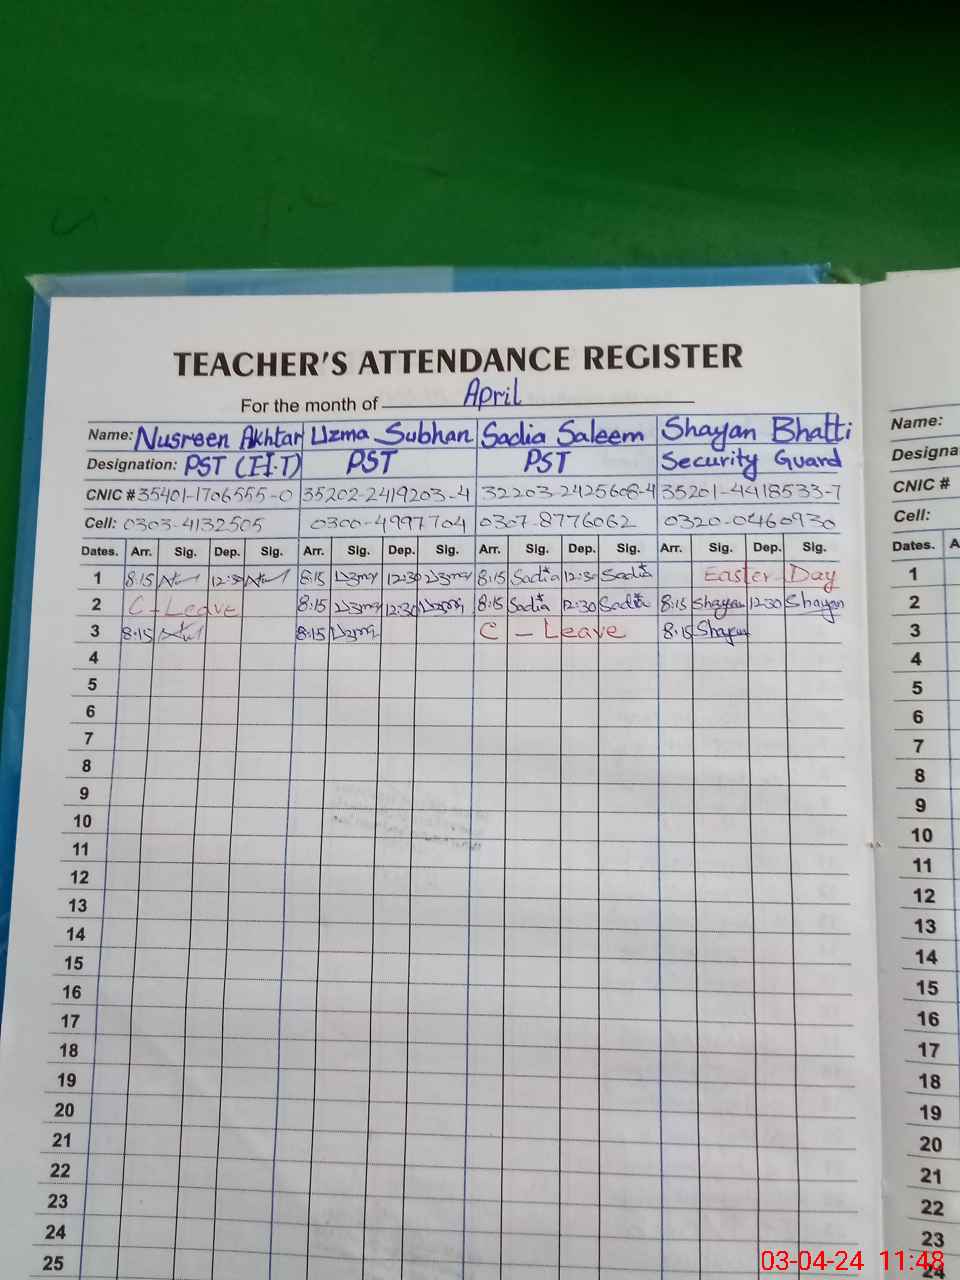 TEACHER'S ATTENDANCE REGISTER
For the month of April
Name: Nusreen Akhtar Uzma Subhan Sadia Saleem Shayan Bhatti
Designation: PST (I.I.T) PST PST Security Guard
CNIC # 35401-1706555-0 35202-2419203-4 32203-2425608-4 35201-4418533-7
Cell: 0303-4132505 0300-4997704 0307-8776062 0320-0460930
Dates. Arr. Sig. Dep. Sig. Arr. Sig. Dep. Sig. Arr. Sig. Dep. Sig. Arr. Sig. Dep. Sig.
1 8:15 12:30 8:15 Uzma 12:30 Uzma 8:15 Sadia 12:30 Sadia Easter Day
2 C-Leave 8:15 Uzma 12:30 Uzma 8:15 Sadia 12:30 Sadia 8:15 Shayan 12:30 Shayan
3 8:15 8:15 Uzma C-Leave 8:15 Shayan
4
5
6
7
8
9
10
11
12
13
14
15
16
17
18
19
20
21
22
23
24
25
Name:
Designa
CNIC #
Cell:
Dates. A
1
2
3
4
5
6
7
8
9
10
11
12
13
14
15
16
17
18
19
20
21
22
23
24
03-04-24 11:48